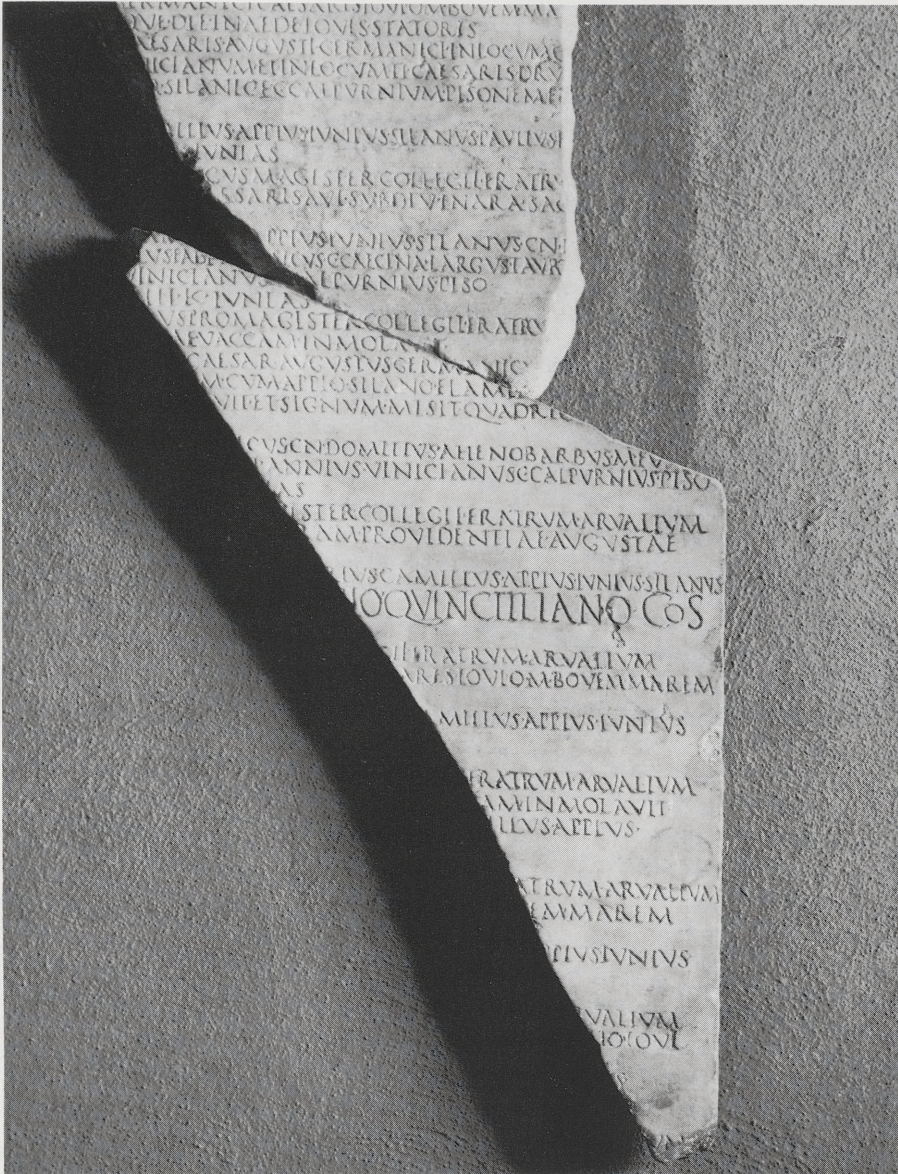 ERMANICICAESARISIOVIOMBOVEMMA
QVEDIEINAEDEIOVISSTATORIS
AESARISAVGVSTIGERMANICIINLOCVMC
NICIANVMETINLOCVMTICAESARISDRV
SILANICETCCALPVRNIVMPISONEME
APPIVSIVNIVSSILANVSPAVLLVSF
IVNIAS
CVSMAGISTERCOLLEGIIFRATR
VBDIVINARASAC
PPIVSIVNIVSSILANVSCN
VSFABI CVSCCAECINALARGVSTAVR
INICIANVS LPVRNIVSPISO
IVNIAS
VSPROMAGISTERCOLLEGIIFRATRV
AEVACCAMINMOLA
CAESARAVGVSTVSGERMANIC
MCVMAPPIOSILANOFLAM
ETSIGNVMMISITQVADRI
CVSCN·DOMITIVS·AHENOBARBVS
ANNIVS·VINICIANVSCCALPVRNIVS·PISO
AS
ISTERCOLLEGIIFRATRVM·ARVALIVM
AMPROVIDENTIAEAVGVSTAE
IVSCAMILLVS·APPIVSIVNIVS·SILANVS
IOQVINCTILIANO COS
IIFRATRVM·ARVALIVM
ARISIOVIO·M·BOVEMMAREM
MILLVS·APPIVS·IVNIVS
FRATRVM·ARVALIVM
AMINMOLAVIT
ILLVS·APPIVS·
ATRVM·ARVALIVM
EMMAREM
PPIVSIVNIVS
RVALIVM
IO·IOVI
VM